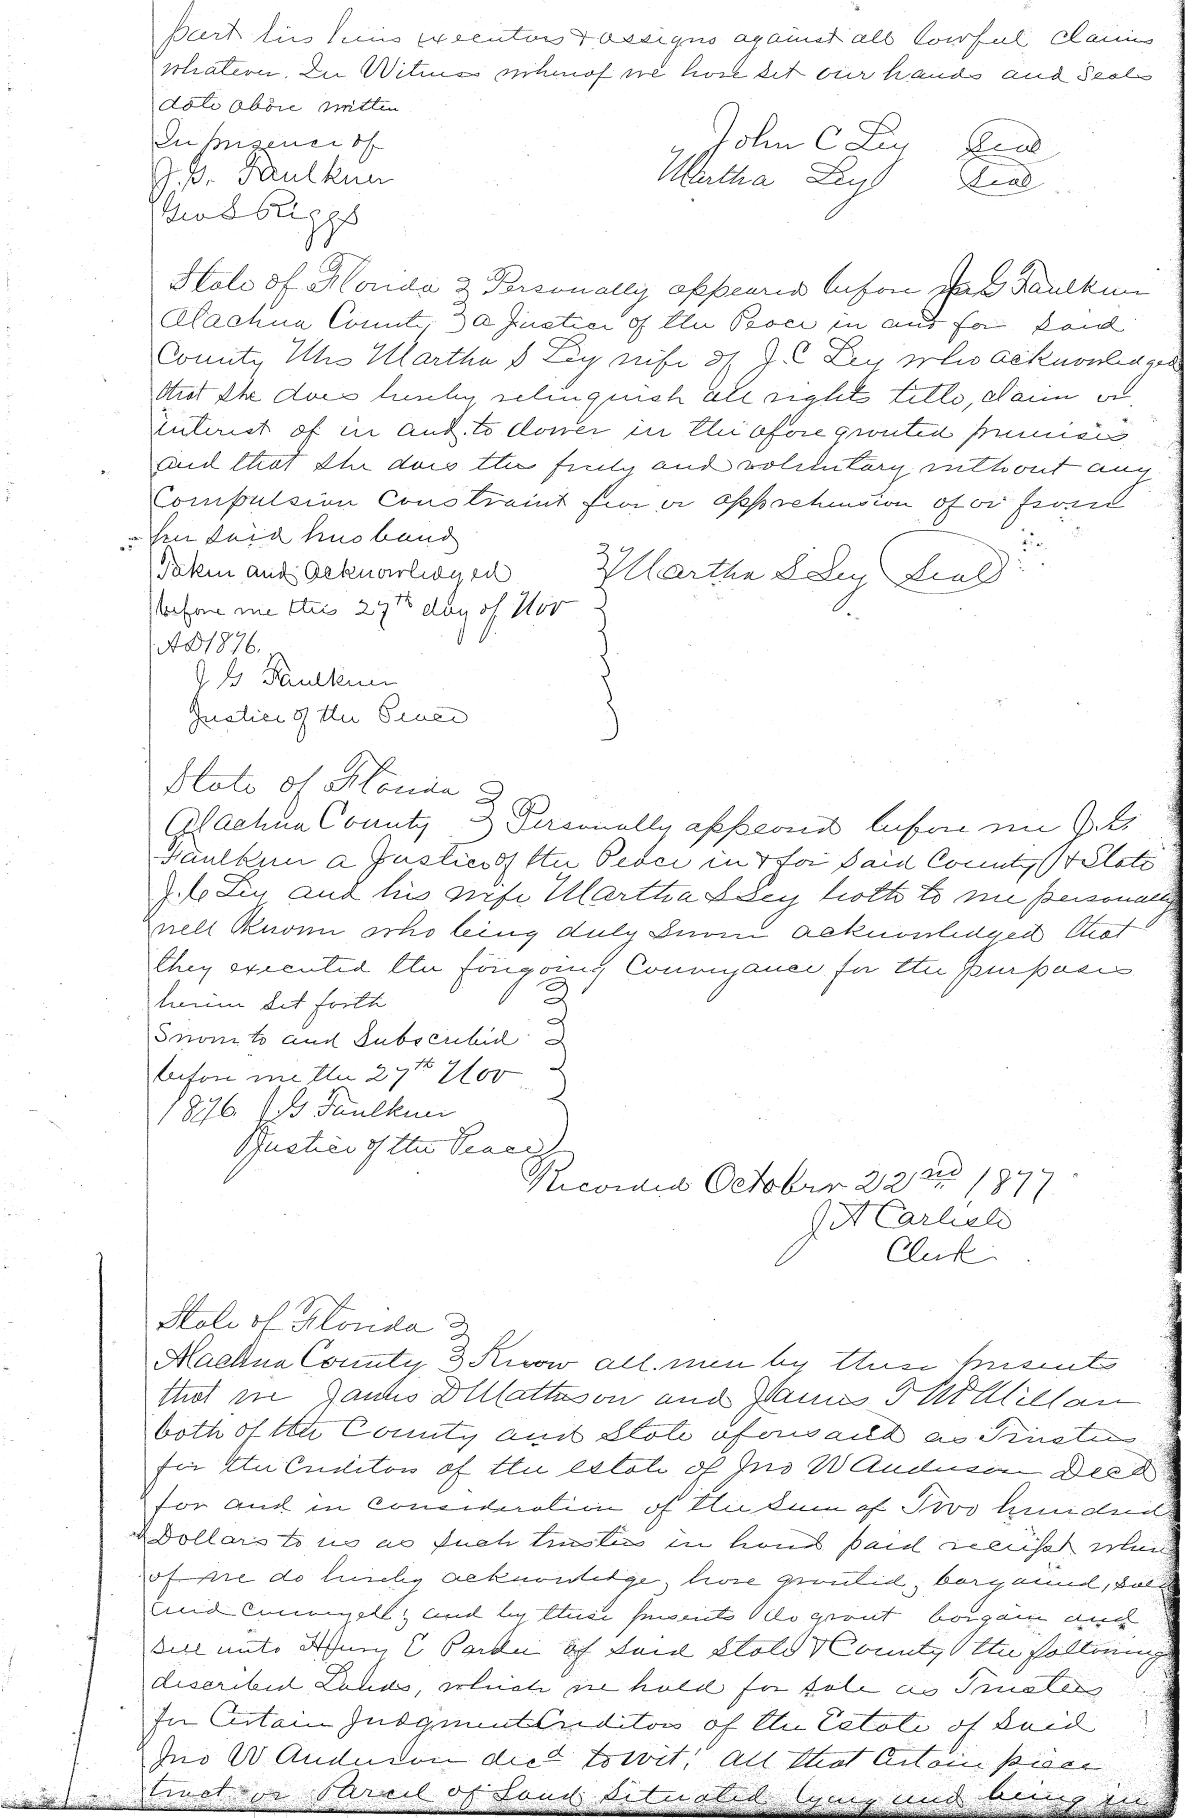 part his heirs executors & assigns against all lawful claims
whatever. In Witness whereof we have set our hands and Seals
date above written
In presence of
John C Ley Seal
J. G. Faulkner
Martha Ley Seal
Geo S Riggs
State of Florida } Personally appeared before me J G Faulkner
Alachua County } a Justice of the Peace in and for said
County Mrs Martha S Ley wife of J. C Ley who acknowledged
that she does hereby relinquish all rights title, claim or
interest of in and to dower in the afore granted premises
and that she does the freely and voluntary without any
Compulsion Constraint fear or apprehension of or from
her said husband
Taken and acknowledged } Martha S Ley Seal
before me this 27th day of Nov
AD 1876.
J G Faulkner
Justice of the Peace
State of Florida }
Alachua County } Personally appeared before me J. G.
Faulkner a Justice of the Peace in & for said County & State
J. C Ley and his wife Martha S Ley both to me personally
well known who being duly sworn acknowledged that
they executed the foregoing Conveyance for the purposes
herein set forth
Sworn to and Subscribed
before me the 27th Nov
1876. J G Faulkner
Justice of the Peace
Recorded October 22nd 1877
J A Carlisle
Clerk
State of Florida }
Alachua County } Know all men by these presents
that we James D Matheson and James T McMillan
both of the County and State aforesaid as Trustees
for the Creditors of the estate of Jno W Anderson Decd
for and in consideration of the sum of Two hundred
Dollars to us as such trustees in hand paid receipt where
of we do hereby acknowledge, have granted, bargained, sold
and conveyed; and by these presents do grant bargain and
sell unto Henry E Pardee of said State & County the following
described Lands, which we hold for sale as Trustees
for Certain Judgment Creditors of the Estate of said
Jno W Anderson decd to wit: all that Certain piece
tract or Parcel of Land Situated lying and being in